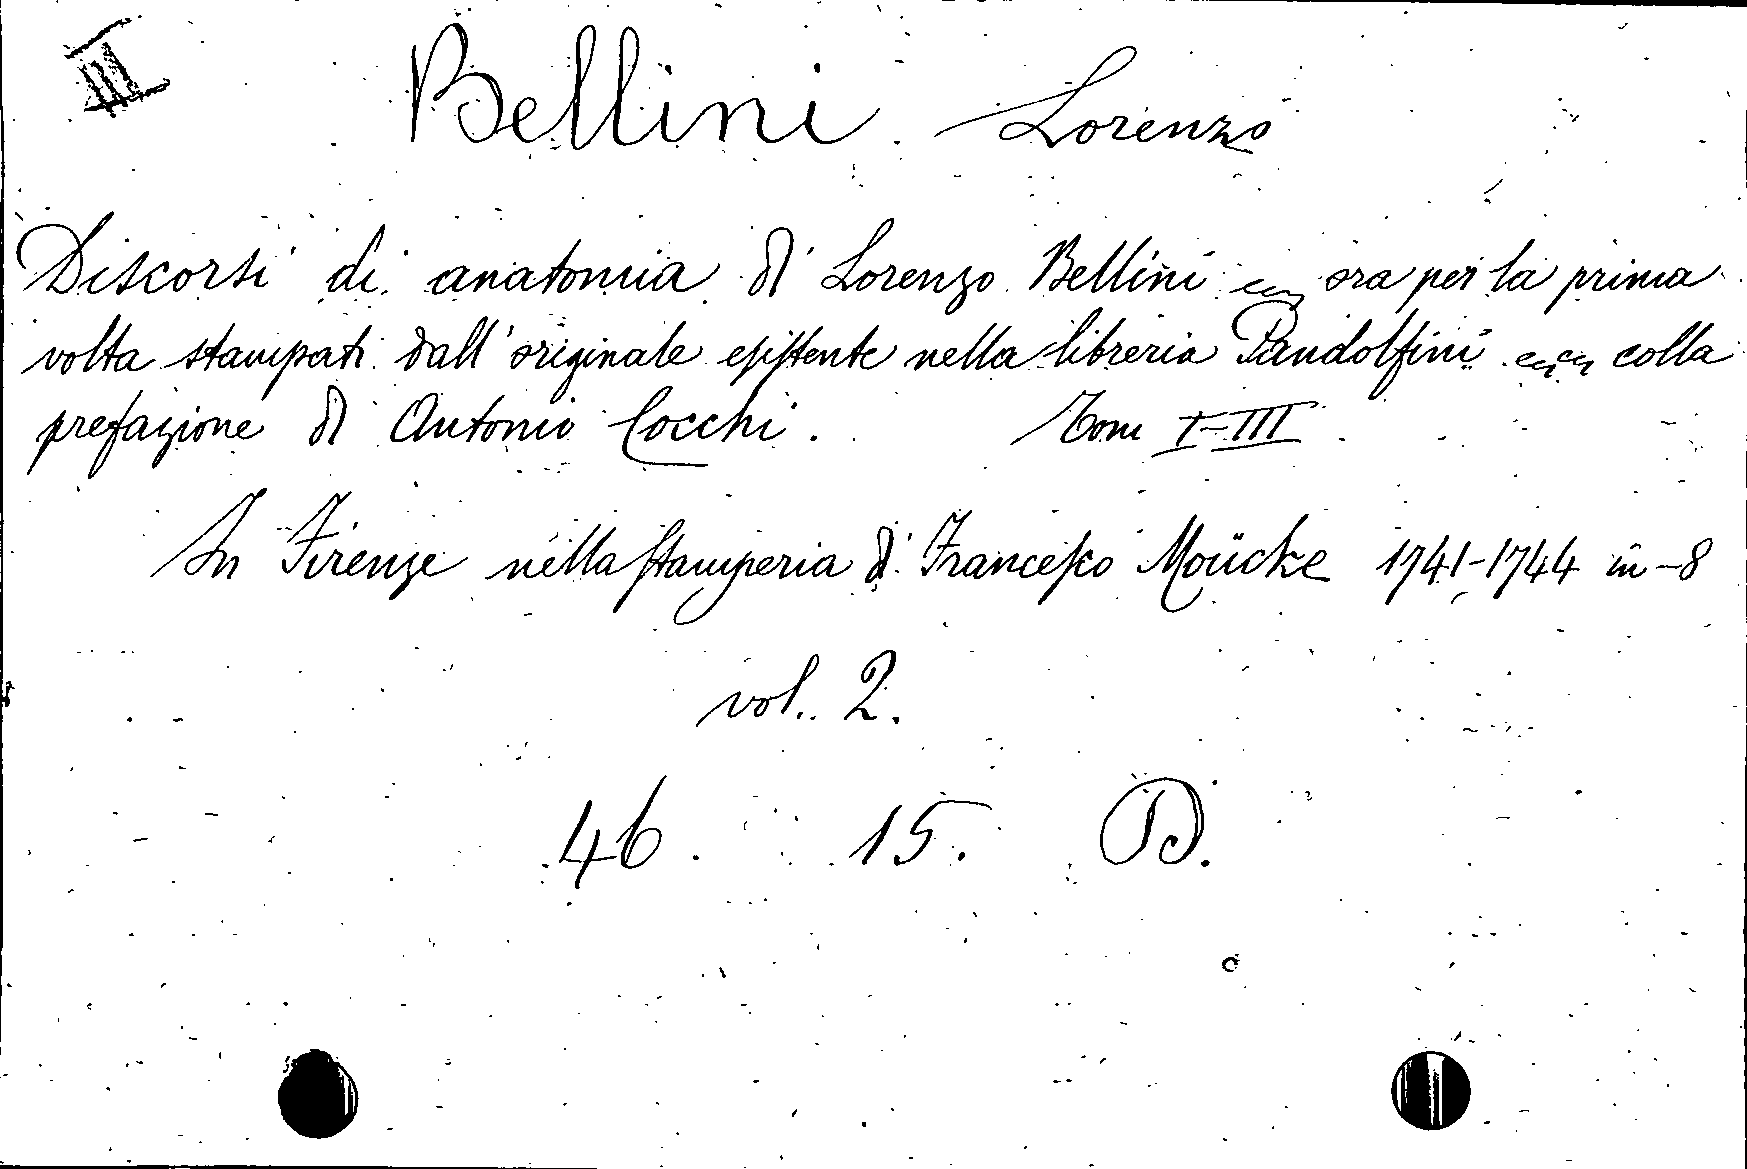 III
Bellini Lorenzo
Discorsi di anatomia di Lorenzo Bellini ora per la prima
volta stampati dall'originale esistente nella libreria Pandolfini colla
prefazione di Antonio Cocchi. Tom I-III
In Firenze nella stamperia di Francesco Moücke 1741-1744 in-8
vol. 2.
46. 15. D.